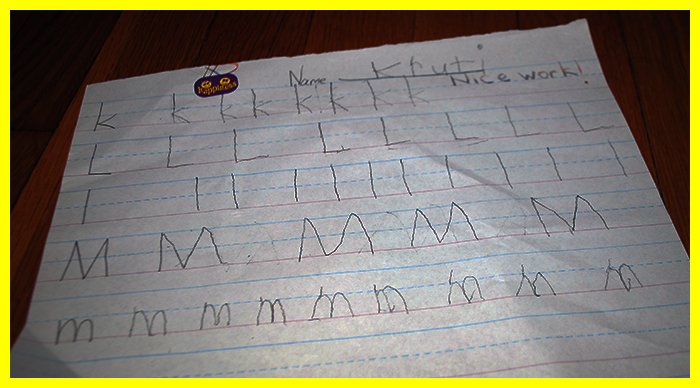 Name Khuti
happiness
Nice work!
k k k k k k k k
L L L L L L L L
l l l l l l l l l l l
M M M M M
m m m m m m m m m